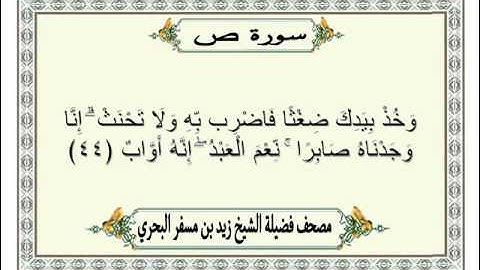 سورة ص
وَخُذْ بِيَدِكَ ضِغْثًا فَاضْرِب بِّهِ وَلَا تَحْنَثْ ۗ إِنَّا
وَجَدْنَاهُ صَابِرًا ۚ نِّعْمَ الْعَبْدُ ۖ إِنَّهُ أَوَّابٌ (٤٤)
مصحف فضيلة الشيخ زيد بن مسفر البحري